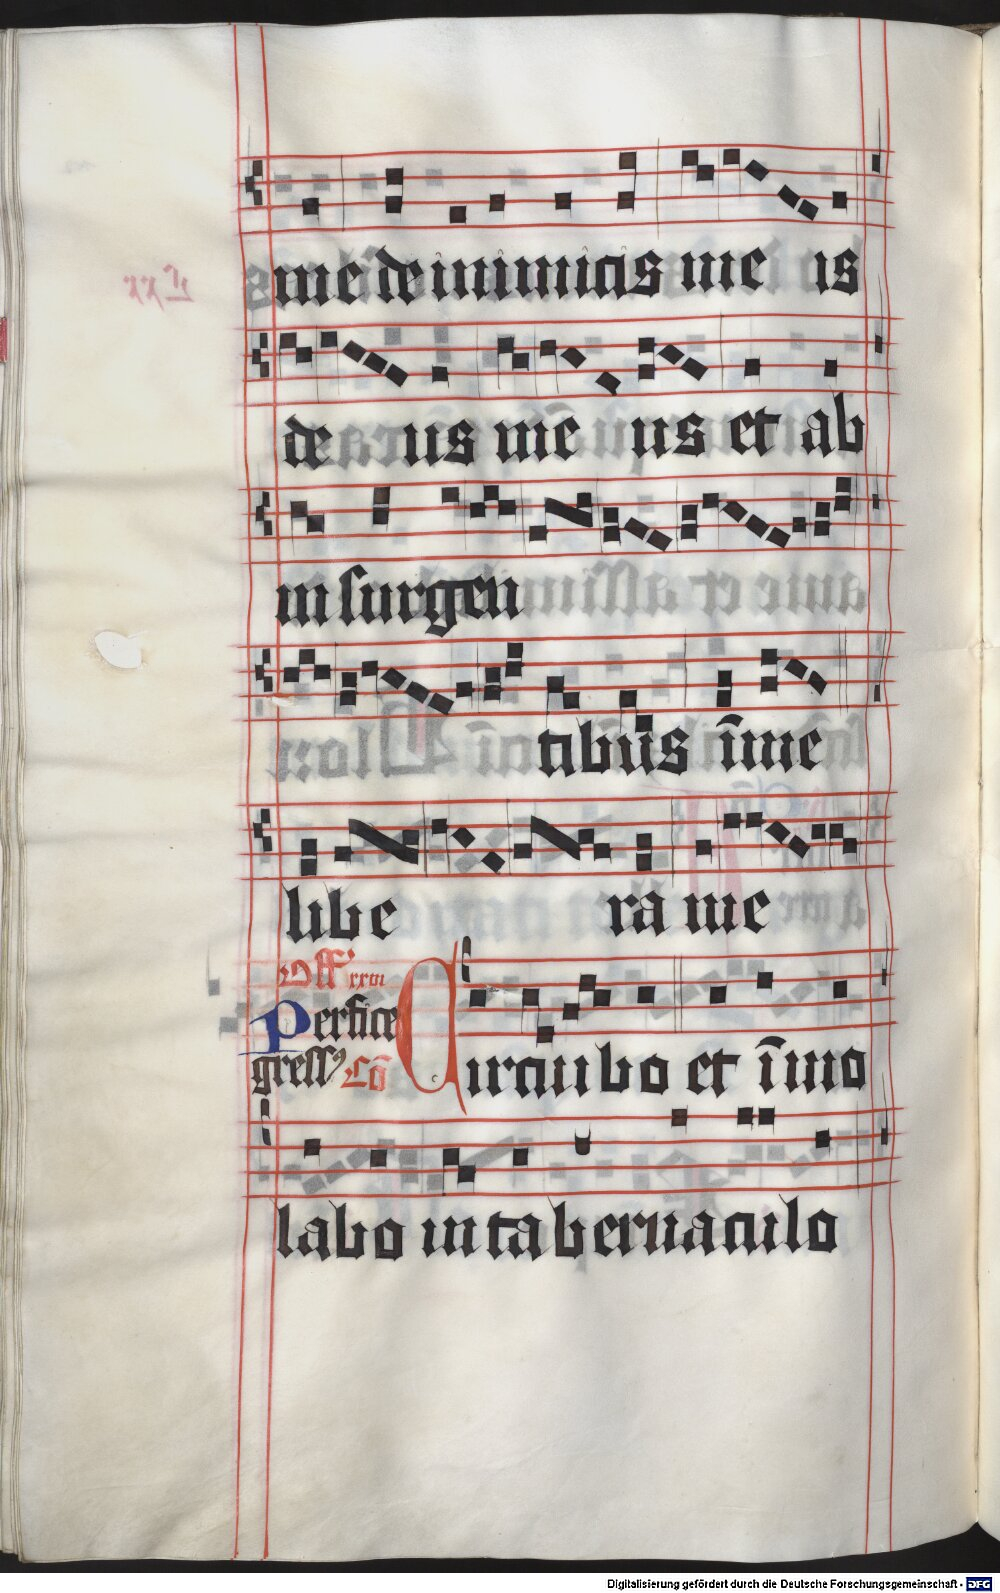 me de inimicis me is
de us me us et ab
in surgen
tibus ī me
libe ra me
Off xxiii
Perfice
gress⁹ Cō
Circuibo et īmo
labo in tabernaculo
Digitalisierung gefördert durch die Deutsche Forschungsgemeinschaft - DFG